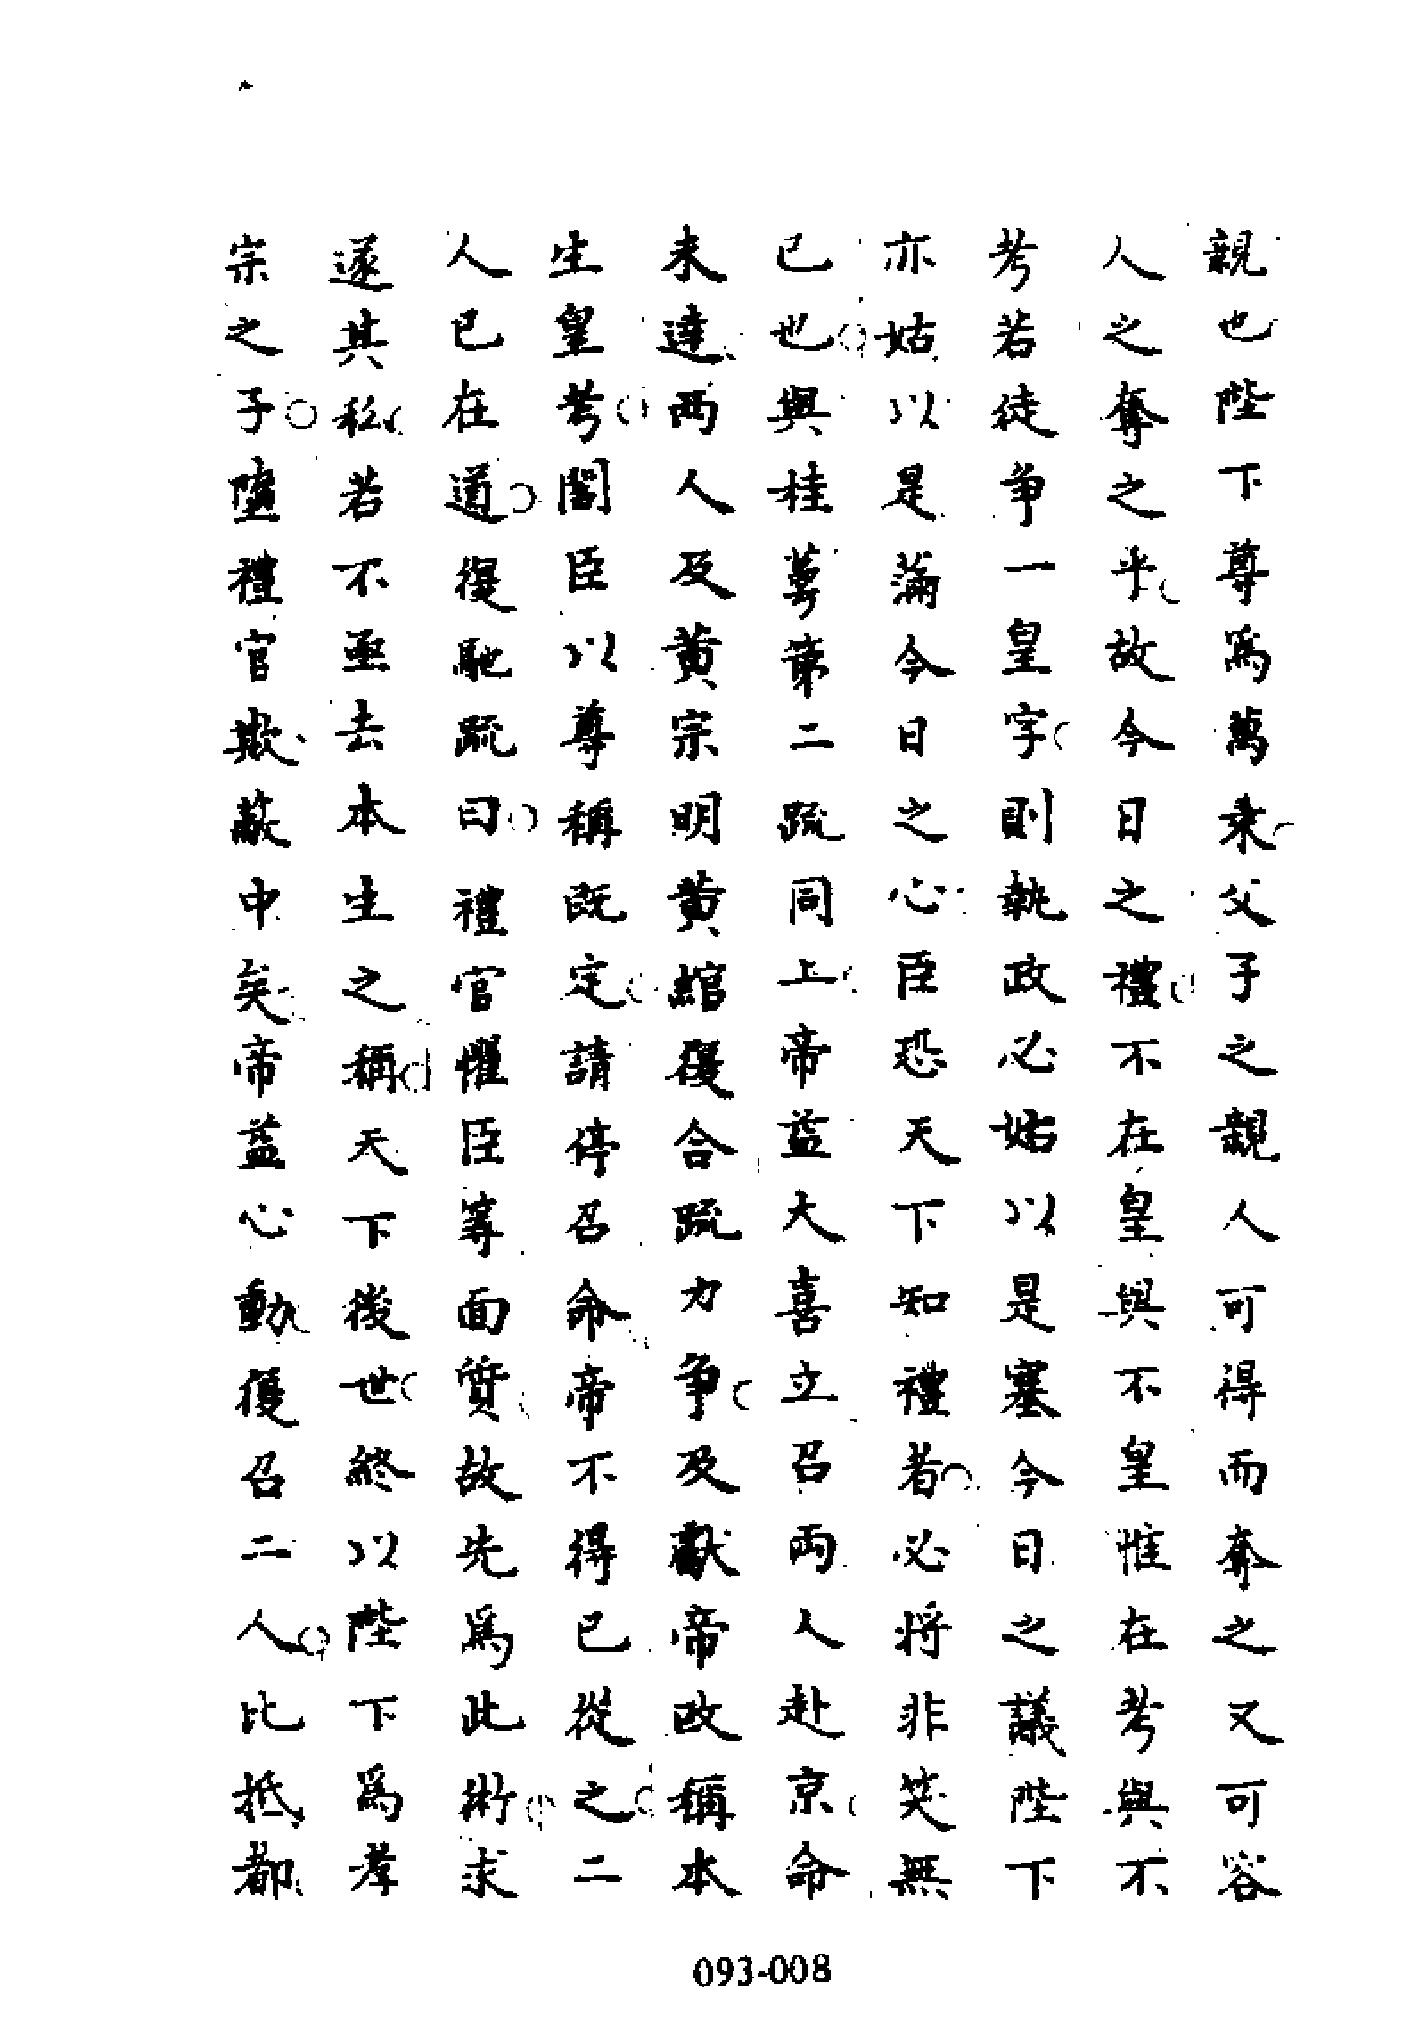 親也陛下尊為萬乗父子之親人可得而奪之又可容
人之奪之乎故今日之禮不在皇與不皇惟在考與不
考若徒争一皇字則執政必姑以是塞今日之議陛下
亦姑以是滿今日之心臣恐天下知禮者必将非笑無
已也與桂萼第二疏同上帝益大喜立召兩人赴京命
未達兩人及黄宗明黄綰復合疏力争及獻帝改稱本
生皇考閣臣以尊稱既定請停召命帝不得已從之二
人已在道復馳疏曰禮官懼臣等面質故先為此術求
遂其私若不亟去本生之稱天下後世終以陛下為孝
宗之子墮禮官欺蔽中矣帝益心動復召二人比抵都
093-008